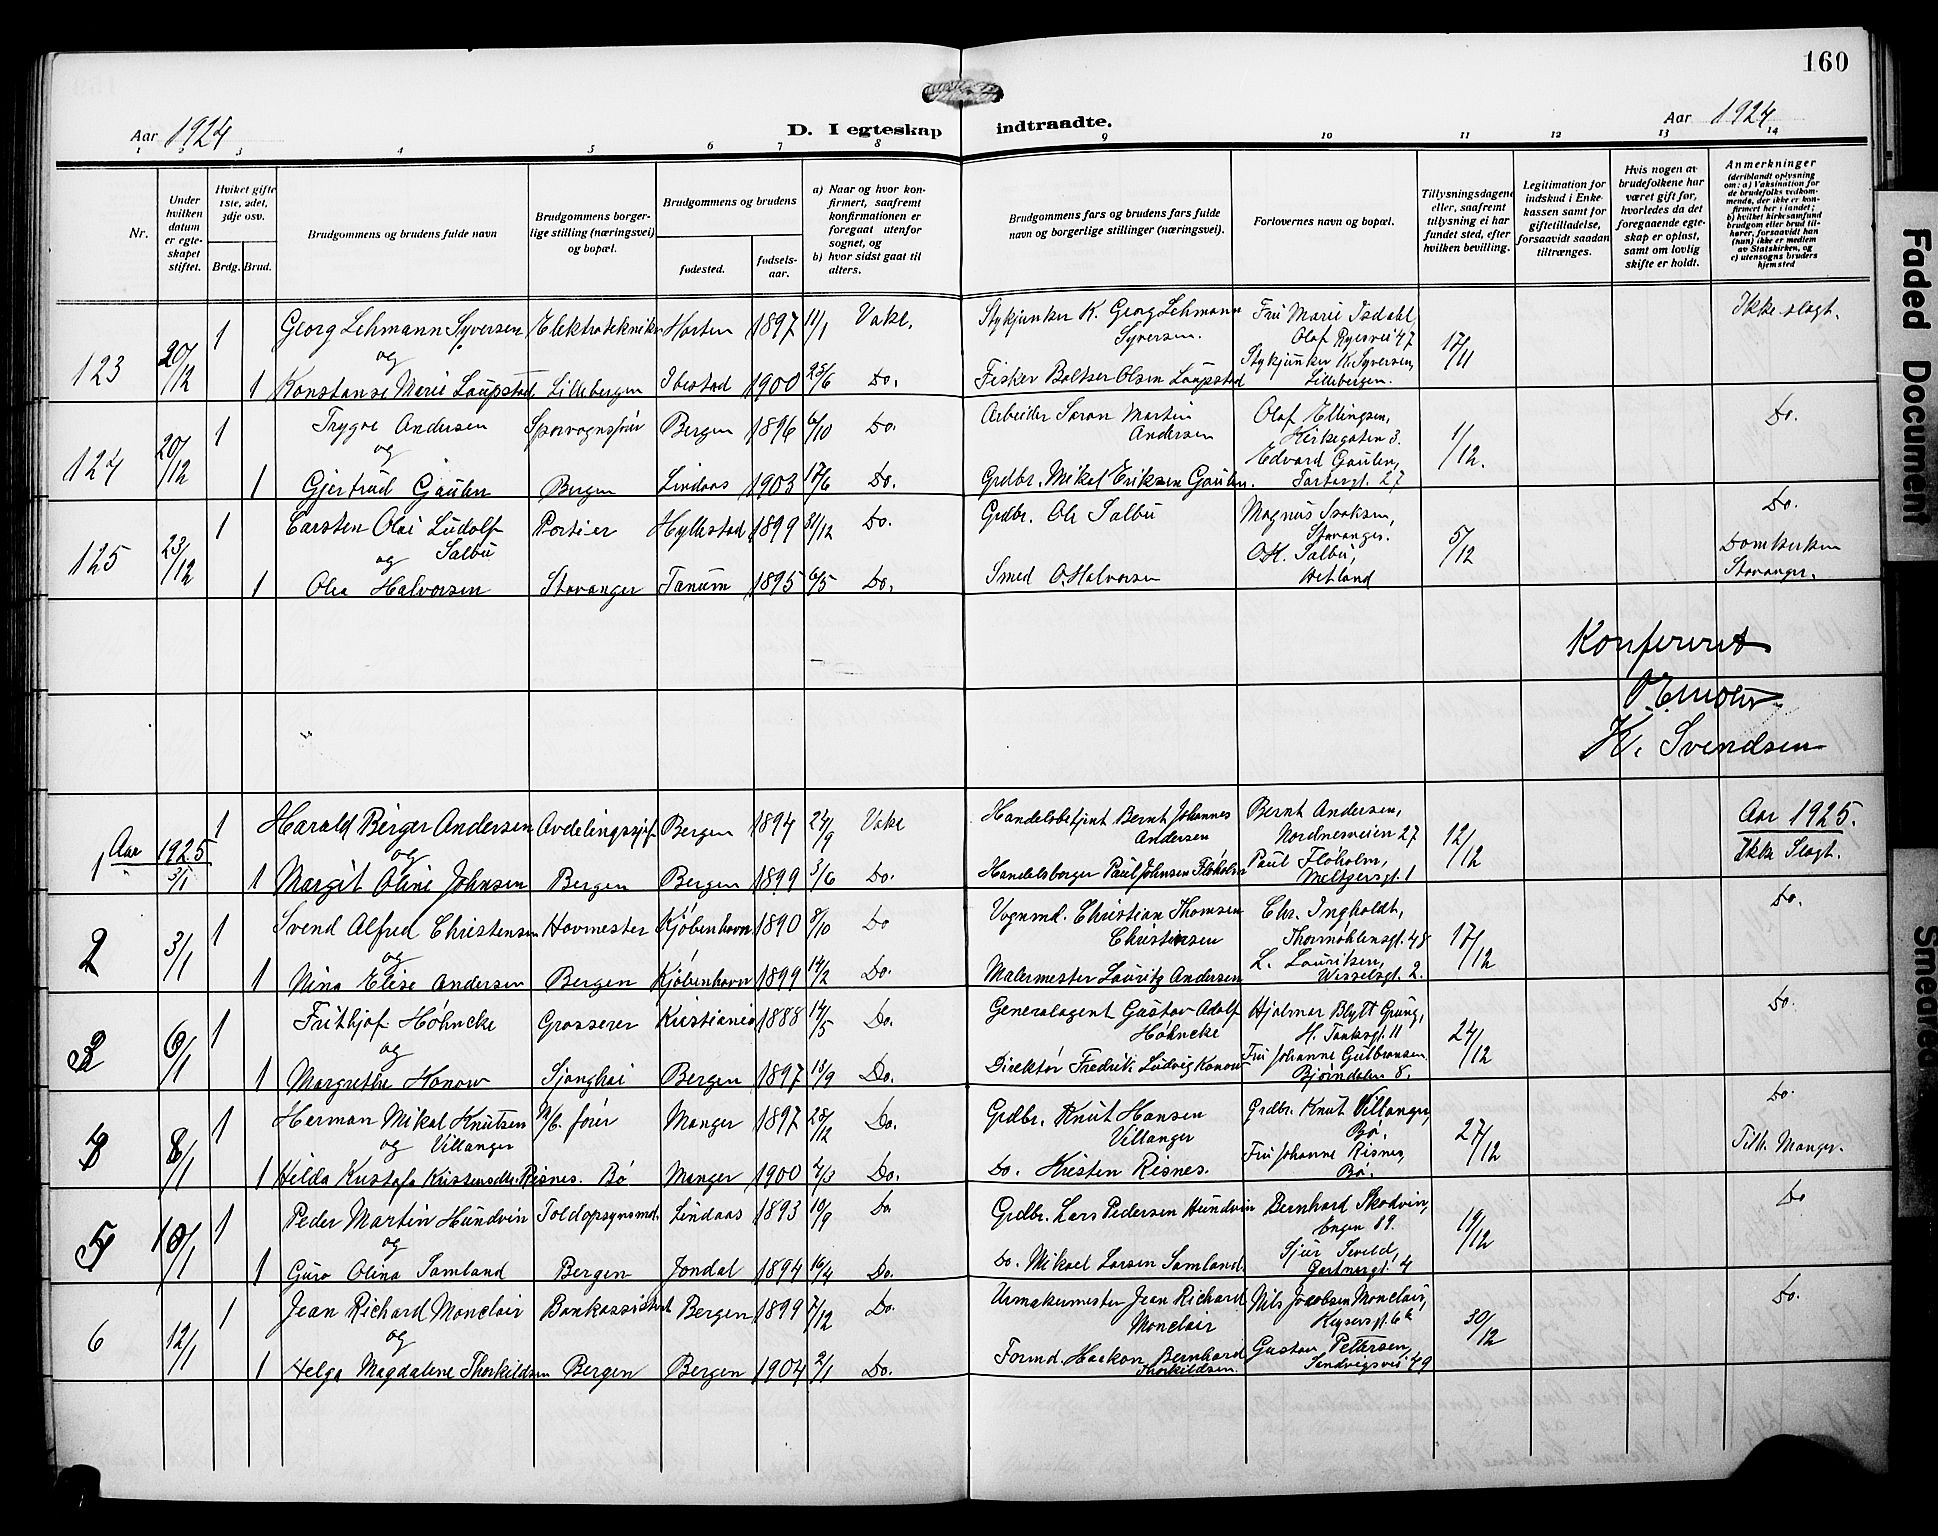 160
Aar 1924
D. I egteskap indtraadte.
Aar 1924
1 2 3 4 5 6 7 8 9 10 11 12 13 14
Nr.
Under hvilken datum er egteskapet stiftet.
Hvilket gifte 1ste, 2det, 3dje osv.
Brdg. Brud.
Brudgommens og brudens fulde navn
Brudgommens borgerlige stilling (næringsvei) og bopæl.
Brudgommens og brudens
fødested.
fødselsaar.
a) Naar og hvor konfirmert, saafremt konfirmationen er foregaat utenfor sognet, og
b) hvor sidst gaat til alters.
Brudgommens fars og brudens fars fulde navn og borgerlige stillinger (næringsvei).
Forlovernes navn og bopæl.
Tillysningsdagene eller, saafremt tillysning ei har fundet sted, efter hvilken bevilling.
Legitimation for indskud i Enkekassen samt for giftetilladelse, forsaavidt saadan tiltrænges.
Hvis nogen av brudefolkene har været gift før, hvorledes da det foregaaende egteskap er opløst, samt om lovlig skifte er holdt.
Anmerkninger
(deriblandt oplysning om: a) Vaksination for de brudefolks vedkommende, der ikke er konfirmert her i landet; b) hvilket kirkesamfund brudgom eller brud tilhører, forsaavidt han (hun) ikke er medlem av Statskirken, og c) utensogns bruders hjemsted
123 20/12 1 Georg Lehmann Syversen Elektrotekniker Horten 1897 11/1 Vake. Stykjunker K. Georg Lehmann Syversen. Fru Marie Isdahl, Olaf Ryesvei 47 17/11 Ikke slegt.
og
1 Konstanse Marie Laupstad, Lillebergen Ibestad 1900 25/6 Do. Fisker Baltser Olsen Laupstad Stykjunker K. Syversen, Lillebergen.
124 20/12 1 Trygve Andersen Sporvognsfører Bergen 1896 6/10 Do. Arbeider Søren Martin Andersen Olaf Ellingsen, Kirkegaten 3. 1/12. Do.
og
1 Gjertrud Gaulen Bergen Lindaas 1903 17/6 Do. Grdbr. Mikal Eriksen Gaulen. Edvard Gaulen, 27
125 23/12 1 Carsten Olai Ludolf Salbu Portier Hyllestad 1899 31/12 Do. Grdbr. Ole Salbu Magnus Isaksen, Stavanger. 5/12 Do.
og
1 Olea Halvorsen Stavanger Tanum 1895 6/5 Do. Smed O Halvorsen O.H. Salbu, Hetland Domkirken Stavanger.
Konferert
K. Svendsen
1 Aar 1925 3/1 1 Harald Berger Andersen Avdelingssjef Bergen 1894 27/9 Vake Handelsbetjent Bernt Johannes Andersen Bernt Andersen, Nordnesveien 27 12/12 Aar 1925. Ikke Slegt.
og
1 Margit Oline Johnsen Bergen Bergen 1899 3/6 Do. Handelsborger Paul Johnsen Fløholm Paul Fløholm, Meltzersgt. 1
2 3/1 1 Svend Alfred Christensen Hovmester Kjøbenhavn 1890 8/10 Do Vognmd. Christian Thomsen Christensen Chr. Ingholdt, Thormøhlensgt. 48 17/12 Do.
og
1 Nina Elise Andersen Bergen Kjøbenhavn 1899 14/2 Do. Malermester Lauritz Andersen L. Lauritsen, Wesselsgt. 2.
3 6/1 1 Frithjof Høhncke Grosserer Kristiania 1888 14/5 Do. Generalagent Gustav Adolf Høhncke Hjalmar Blytt Grung, H. Tanksgt. 11 24/12 Do.
og
1 Margrethe Konow Sjanghai Bergen 1897 15/9 Do. Direktør Fredrik Ludvig Konow Fru Johanne Gulbransen Bjørndalen 8.
8/1 1 Herman Mikal Knutsen Villanger Manger 1897 28/12 Do. Grdbr. Knut Hansen Villanger Grdbr. Knut Villanger, Bø. 27/12 Do.
og
1 Hilda Kristofa Kristensdtr. Risnes. Bø Manger 1900 2/3 Do. Do. Kristen Risnes. Fru Johanne Risnes, Bø. Tilh. Manger.
5 10/1 1 Peder Martin Hundvin Toldopsynsmd. Lindaas 1893 10/9 Do Grdbr. Lars Pedersen Hundvin Bernhard Skodvin, Engen 19/12 Do
og
1 Guro Olina Samland Bergen Jondal 1894 16/4 Do. Do. Mikael Larsen Samland. Sjur Gartnergt. 4
6 12/1 1 Jean Richard Monclair Bankassistent Bergen 1899 7/12 Do. Urmakermester Jean Richard Monclair Nils Jacobsen Monclair, 30/12 Do.
og
1 Helga Magdalene Thorkildsen Bergen Bergen 1904 2/1 Do. Formd. Haakon Bernhard Thorkildsen. Gustav Pettersen, Sandvigsvei 49
Faded Document
Smeared